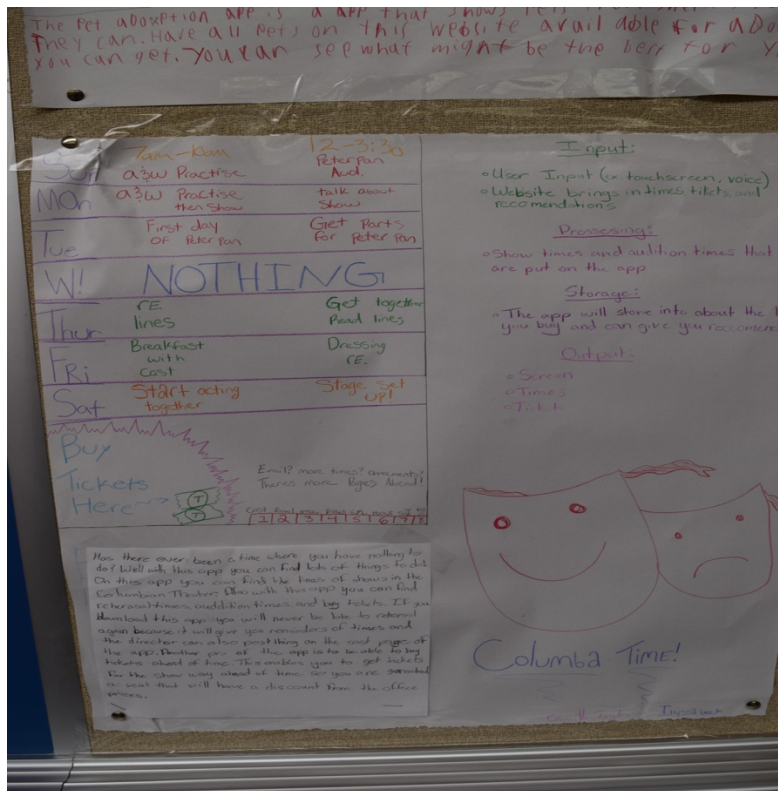 The pet adoxption app is a app that shows pets
They can. Have all pets on this website available for ado
you can get. You can see what might be the best for y
Sun
7am-10am
12-3:30
a&w Practise
Peter Pan
Aud.
Mon
a&w Practise
then Show
talk about
Show
Tue
First day
OF Peter Pan
Get Parts
for Peter Pan
W!
NOTHING
Thur
re.
lines
Get together
Read lines
Fri
Breakfast
with
cast
Dressing
re.
Sat
Start acting
together
Stage set
up!
Buy
Tickets
Here
T
T
Email? more times?
Theres more Pages Ahead!
1 2 3 4 5 6 7 8
Has there ever been a time where you have nothing to
do? Well with this app you can find lots of things to do.
On this app you can find the times of shows in the
Columbian Theater. Also with this app you can find
rehersal times, audition times and buy tickets. If you
download this app you will never be late to rehersal
again because it will give you reminders of times and
the director can also post thing on the cast pages of
the app. Another pro of the app is to be able to buy
tickets ahead of time. This enables you to get tickets
for the show way ahead of time so you are
a seat that will have a discount from the office
prices.
Input:
User Input (ex. touchscreen, voice)
Website brings in times tikets, and
reccomendations
Prossesing:
Show times and audition times that
are put on the app
Storage:
The app will store info about the
you buy and can give you reccomen
Output:
Screen
Times
Tikets
Columba Time!